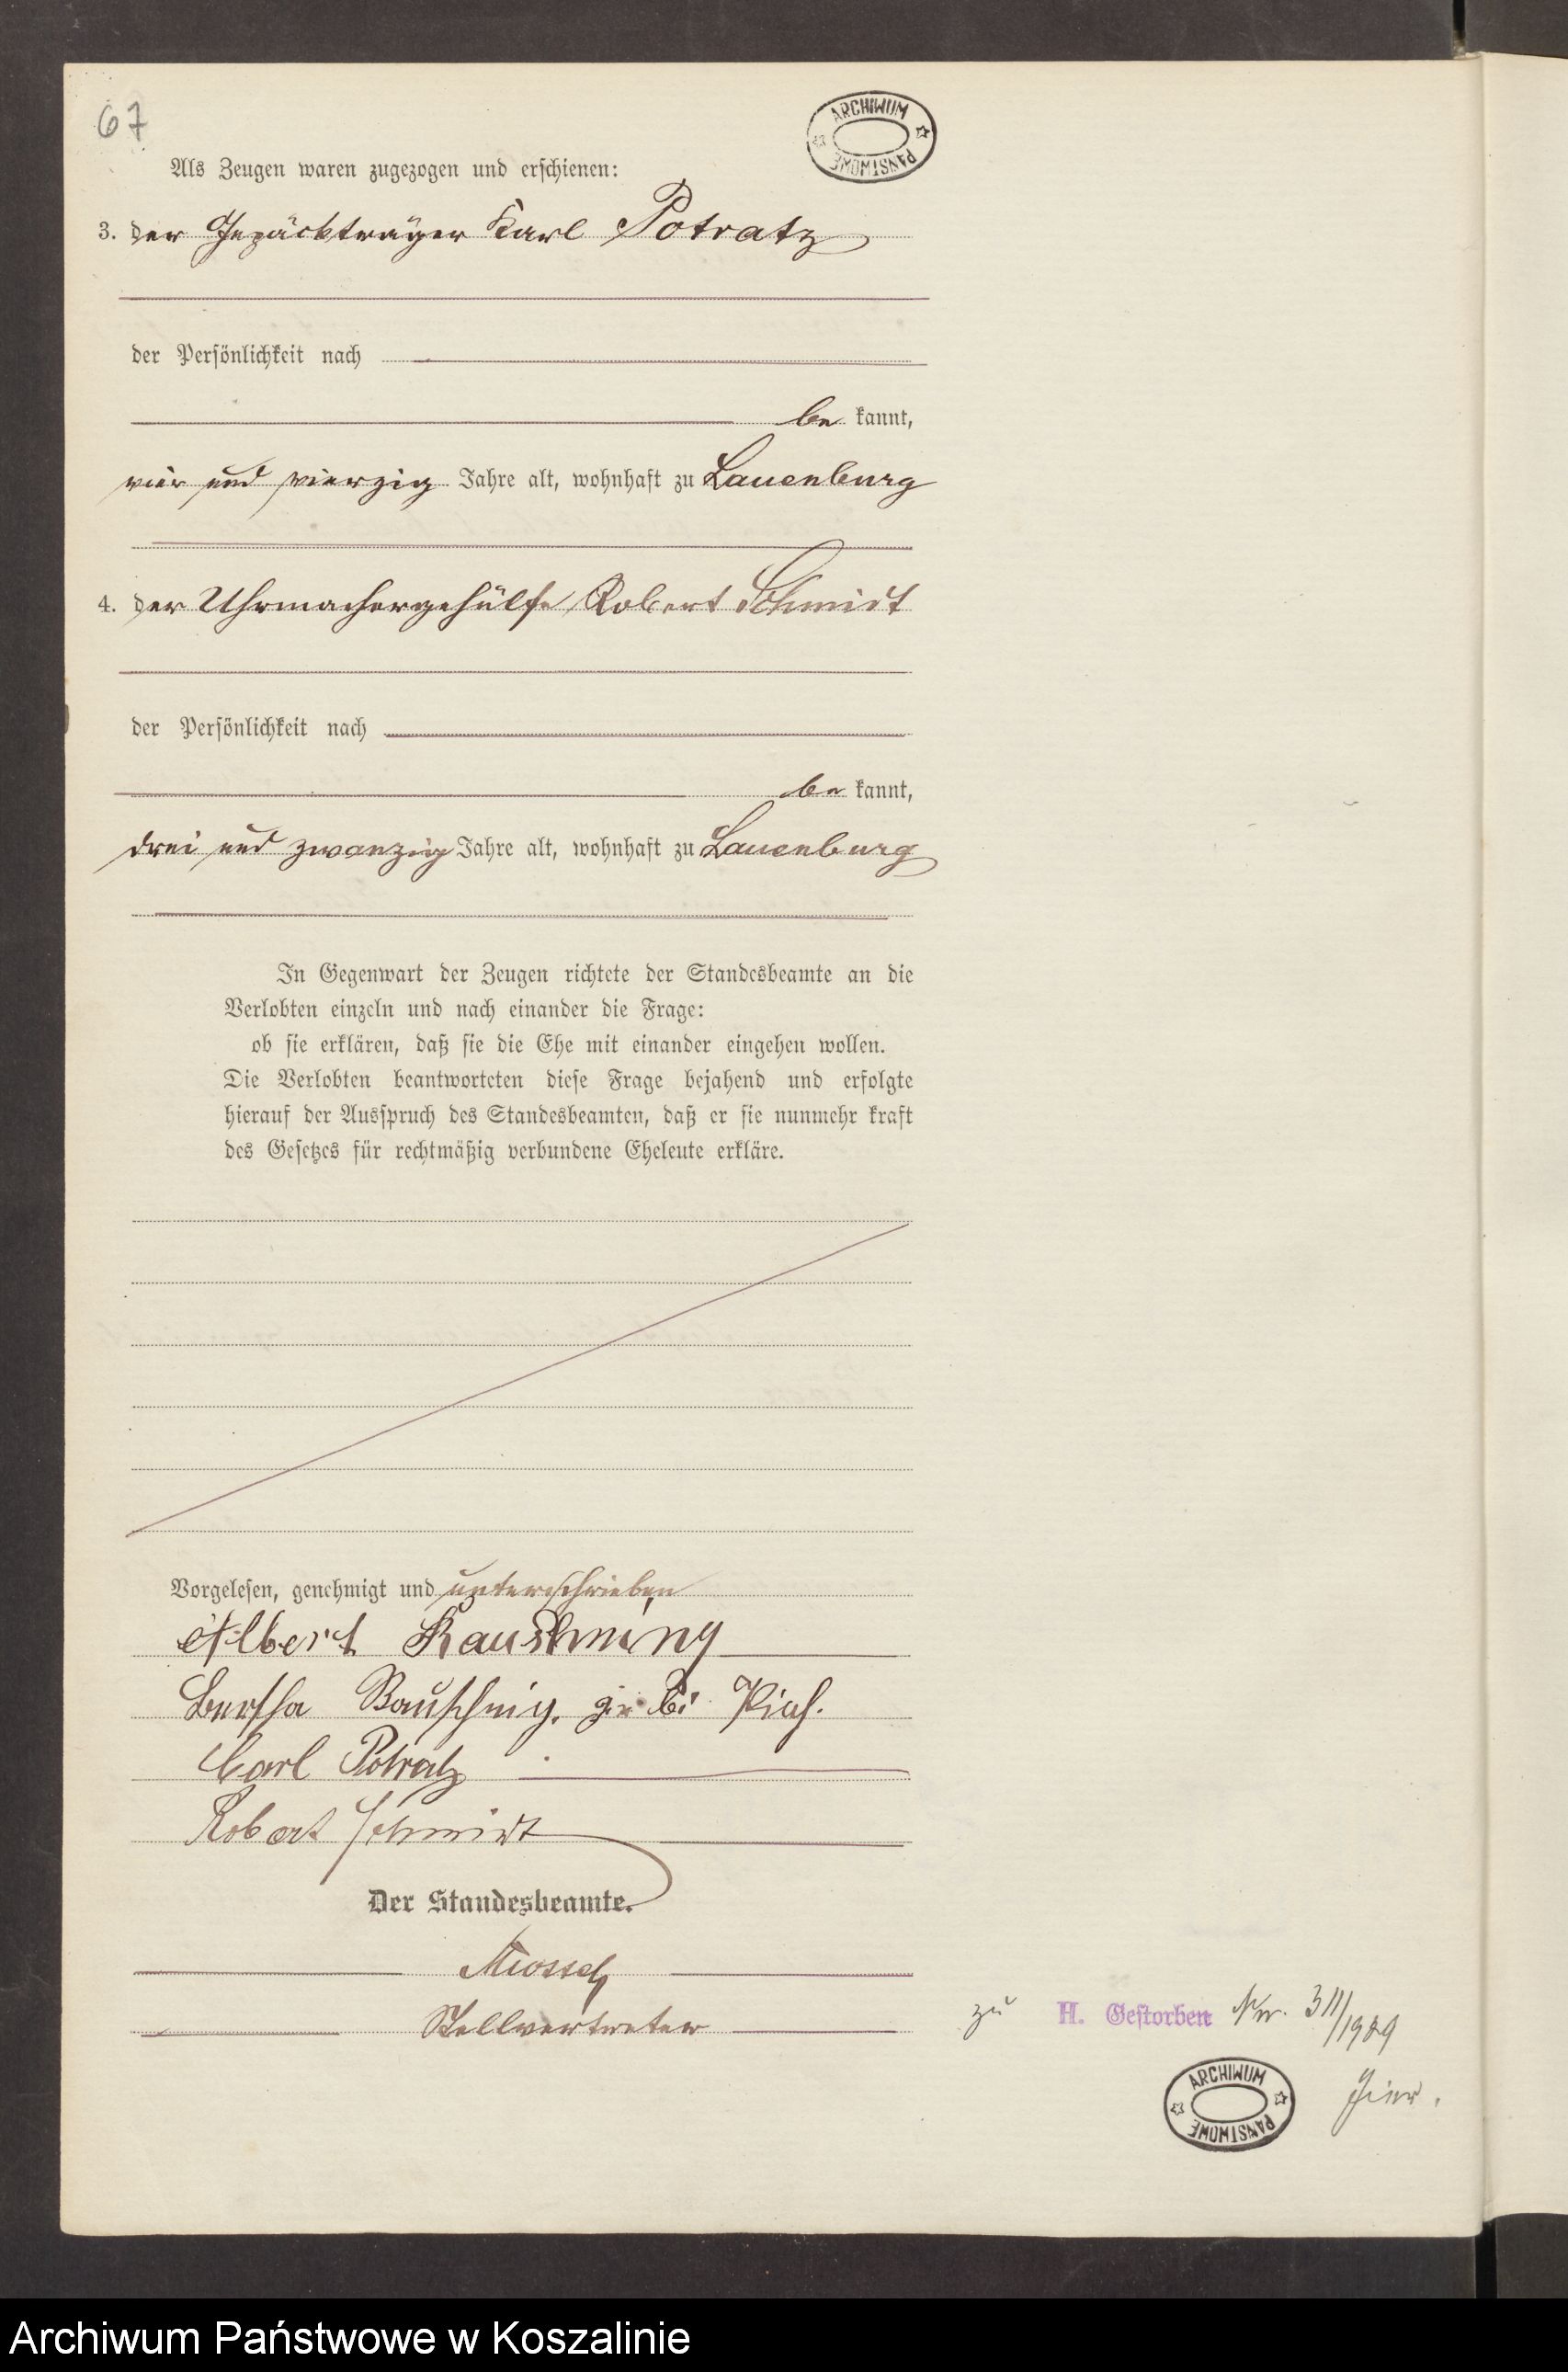 67
ARCHIWUM PAŃSTWOWE
Als Zeugen waren zugezogen und erschienen:
3. der Gepäckträger Karl Potratz
der Persönlichkeit nach
be kannt,
vier und vierzig Jahre alt, wohnhaft zu Lauenburg
4. der Uhrmachergehülfe Robert Schmidt
der Persönlichkeit nach
be kannt,
drei und zwanzig Jahre alt, wohnhaft zu Lauenburg
In Gegenwart der Zeugen richtete der Standesbeamte an die
Verlobten einzeln und nach einander die Frage:
ob sie erklären, daß sie die Ehe mit einander eingehen wollen.
Die Verlobten beantworteten diese Frage bejahend und erfolgte
hierauf der Ausspruch des Standesbeamten, daß er sie nunmehr kraft
des Gesetzes für rechtmäßig verbundene Eheleute erkläre.
Vorgelesen, genehmigt und unterschrieben
Albert Rauschning
Bertha
Carl Potratz
Robert Schmidt
Der Standesbeamte.
Stellvertreter
zu H. Gestorben Nr. 311/
hier.
ARCHIWUM PAŃSTWOWE
Archiwum Państwowe w Koszalinie